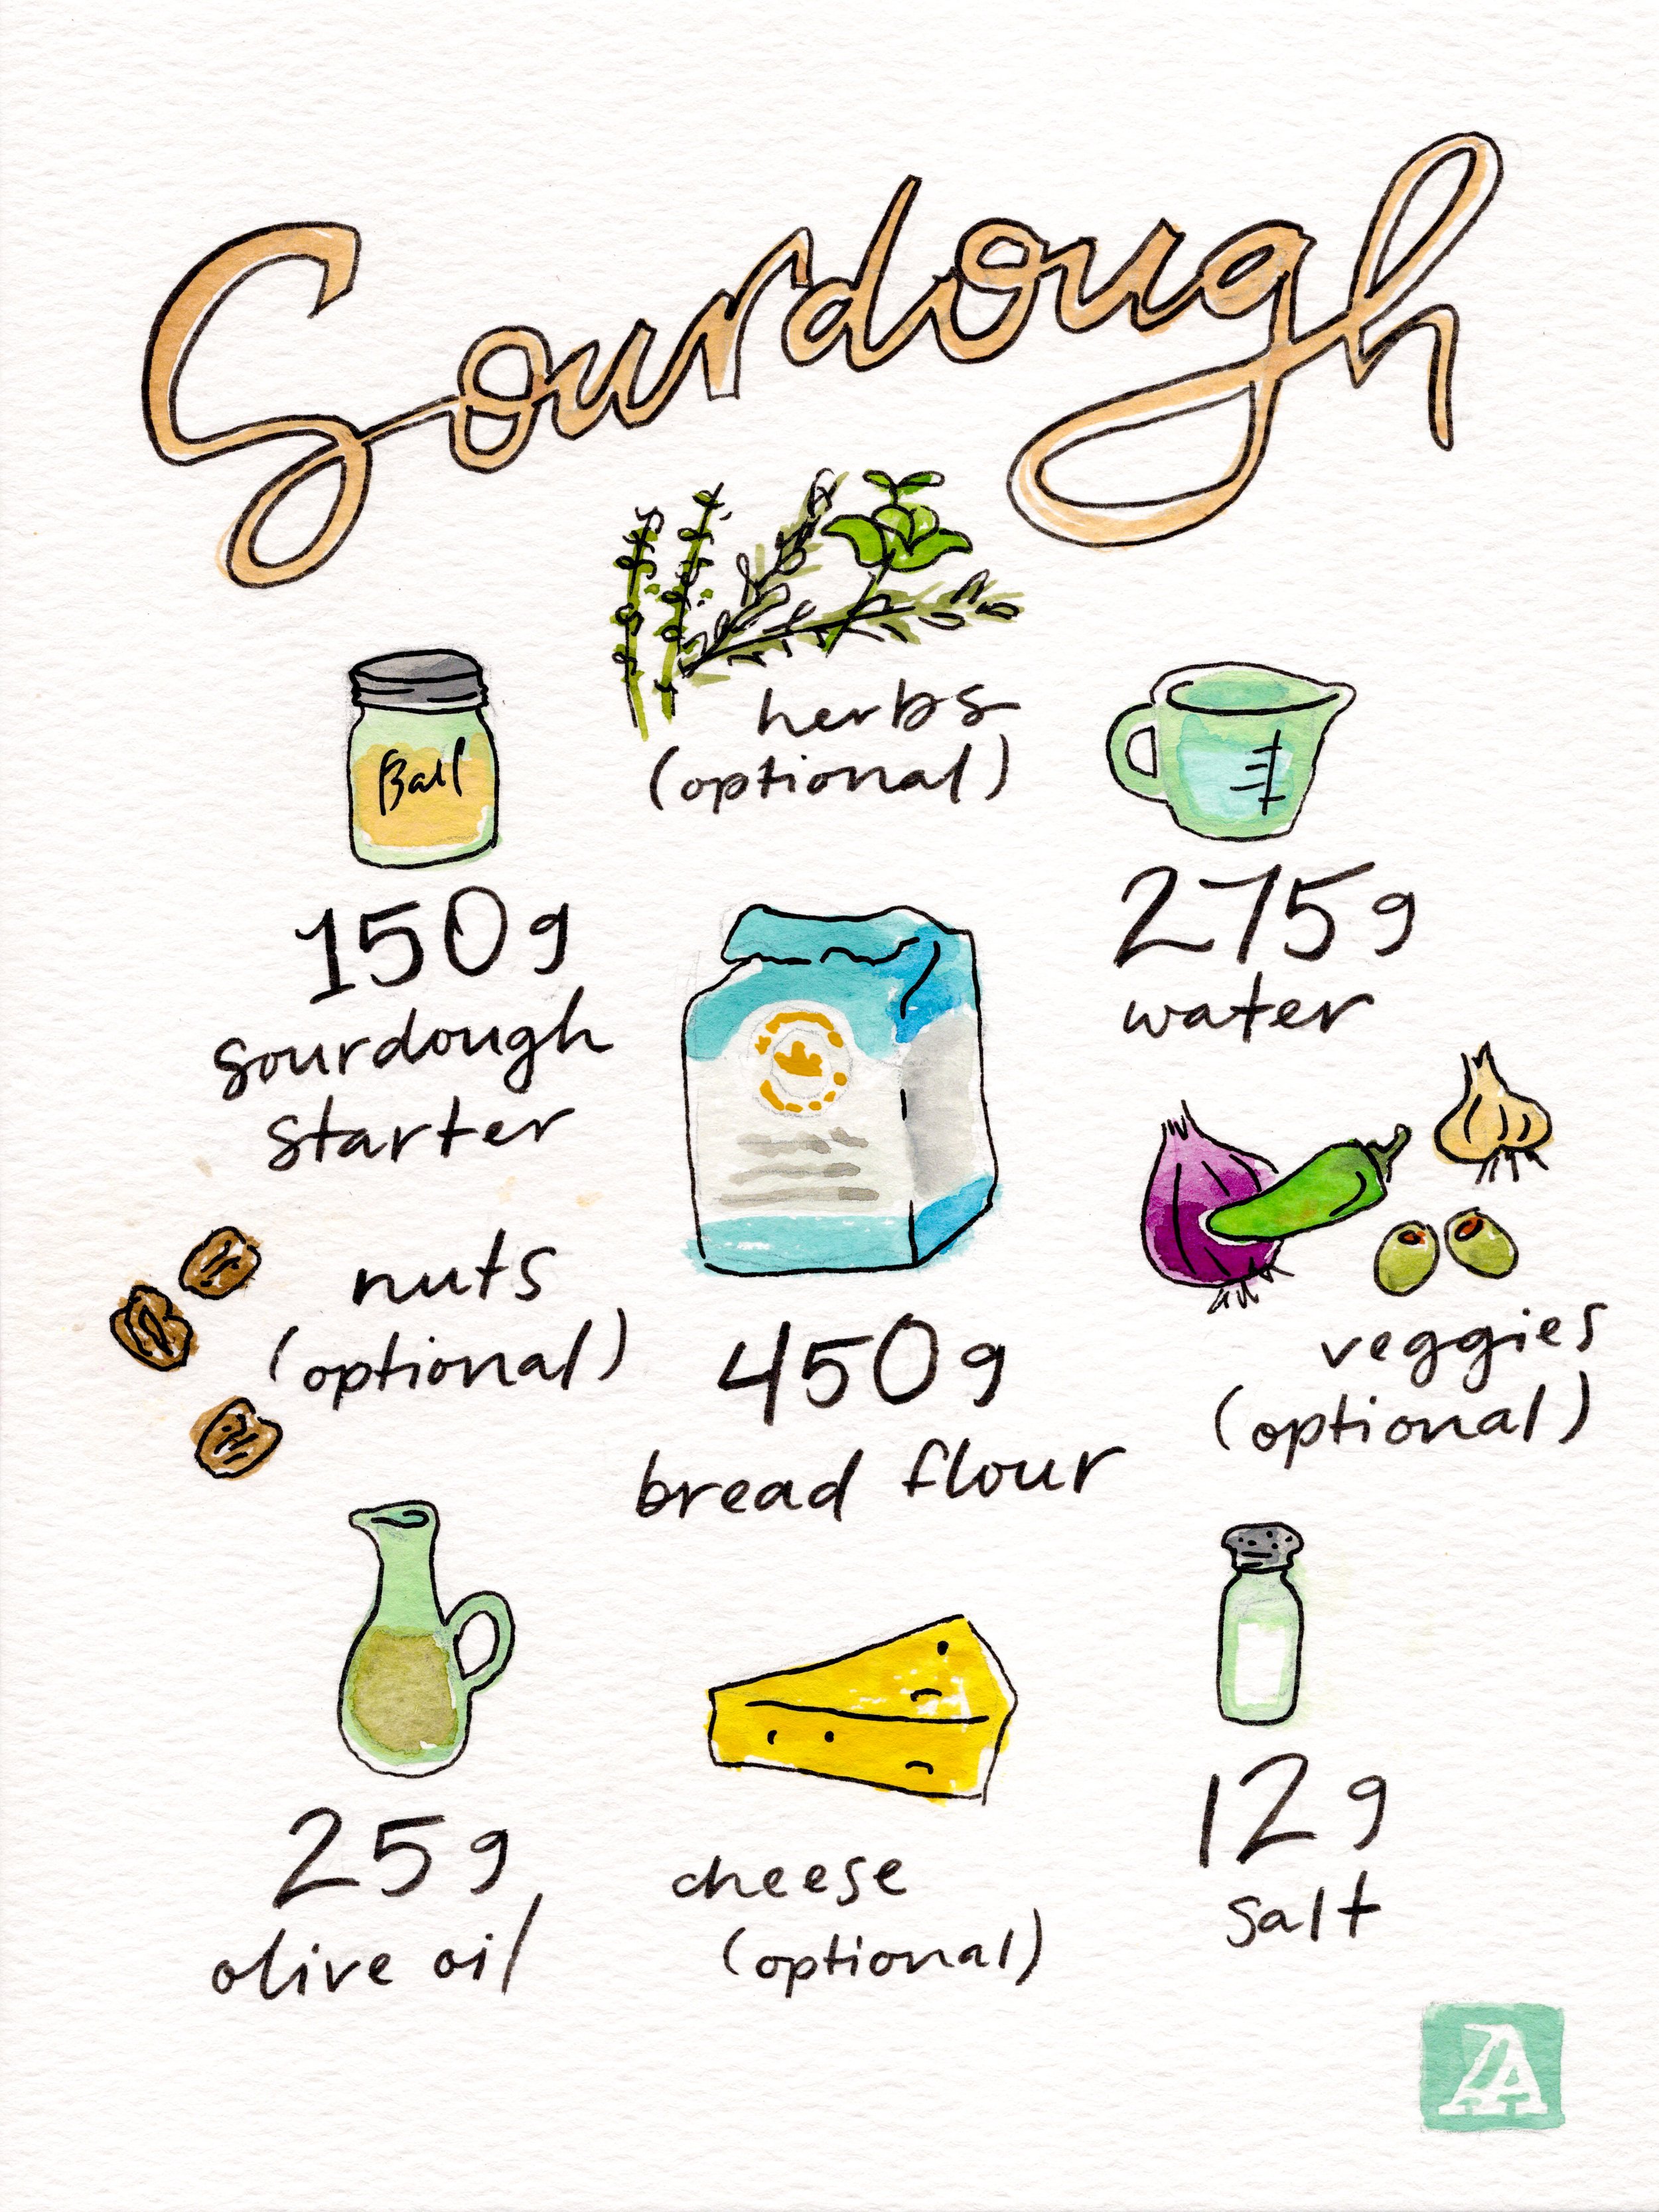 Sourdough
herbs
(optional)
Ball
150g
sourdough
starter
275g
water
nuts
(optional)
450g
bread flour
veggies
(optional)
25g
olive oil
cheese
(optional)
12g
salt